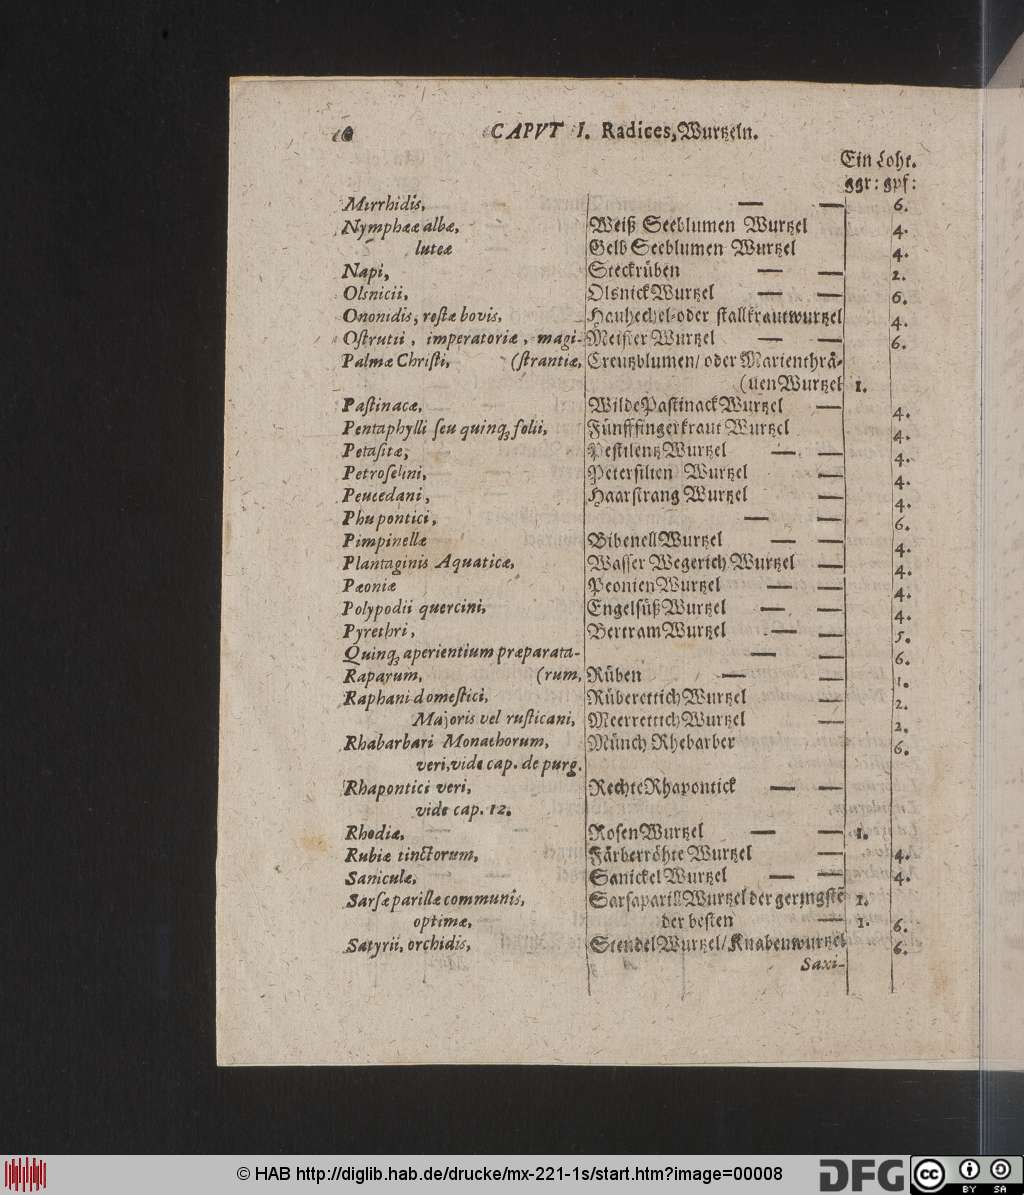 CAPVT I. Radices, Wurtzeln.
Ein Loht.
ggr: gpf:
Mirrhidis, — — 6.
Nymphææ albæ, Weiß Seeblumen Wurtzel 4.
luteæ Gelb Seeblumen Wurtzel 4.
Napi, Steckrüben — — 2.
Olsnicii, Olsnick Wurtzel — — 6.
Ononidis, restæ bovis, Hauhechel-oder stallkrautwurtzel 4.
Ostrutii, imperatoriæ, magi- Meister Wurtzel — — 6.
Palmæ Christi, (strantiæ, Creutzblumen/ oder Marienthrä-
(nen Wurtzel 1.
Pastinacæ, Wilde Pastinack Wurtzel — 4.
Pentaphylli seu quinqꝫ folii, Fünfffingerkraut Wurtzel 4.
Petasitæ, Pestilentz Wurtzel — — 4.
Petroselini, Petersilien Wurtzel — 4.
Peucedani, Haarstrang Wurtzel — 4.
Phu pontici, — — 6.
Pimpinellæ Bibenell Wurtzel — — 4.
Plantaginis Aquaticæ, Wasser Wegerich Wurtzel — 4.
Pæoniæ Peonien Wurtzel — — 4.
Polypodii quercini, Engelsüß Wurtzel — — 4.
Pyrethri, Bertram Wurtzel — — 5.
Quinqꝫ aperientium præparata- — — 6.
Raparum, (rum, Rüben — — 1.
Raphani domestici, Rüberettich Wurtzel — 2.
Majoris vel rusticani, Meerrettich Wurtzel — 2.
Rhabarbari Monachorum, Münch Rhebarber 6.
veri, vide cap. de purg.
Rhapontici veri, Rechte Rhapontick — —
vide cap. 12.
Rhodiæ, Rosen Wurtzel — — 1.
Rubiæ tinctorum, Färberröhte Wurtzel — 4.
Saniculæ, Sanickel Wurtzel — — 4.
Sarsæ parillæ communis, Sarsaparill Wurtzel der geringstē 1.
optimæ, der besten — 1. 6.
Satyrii, orchidis, Stendel Wurtzel/ Knabenwurtzel 6.
Saxi-
© HAB http://diglib.hab.de/drucke/mx-221-1s/start.htm?image=00008
DFG
cc BY SA